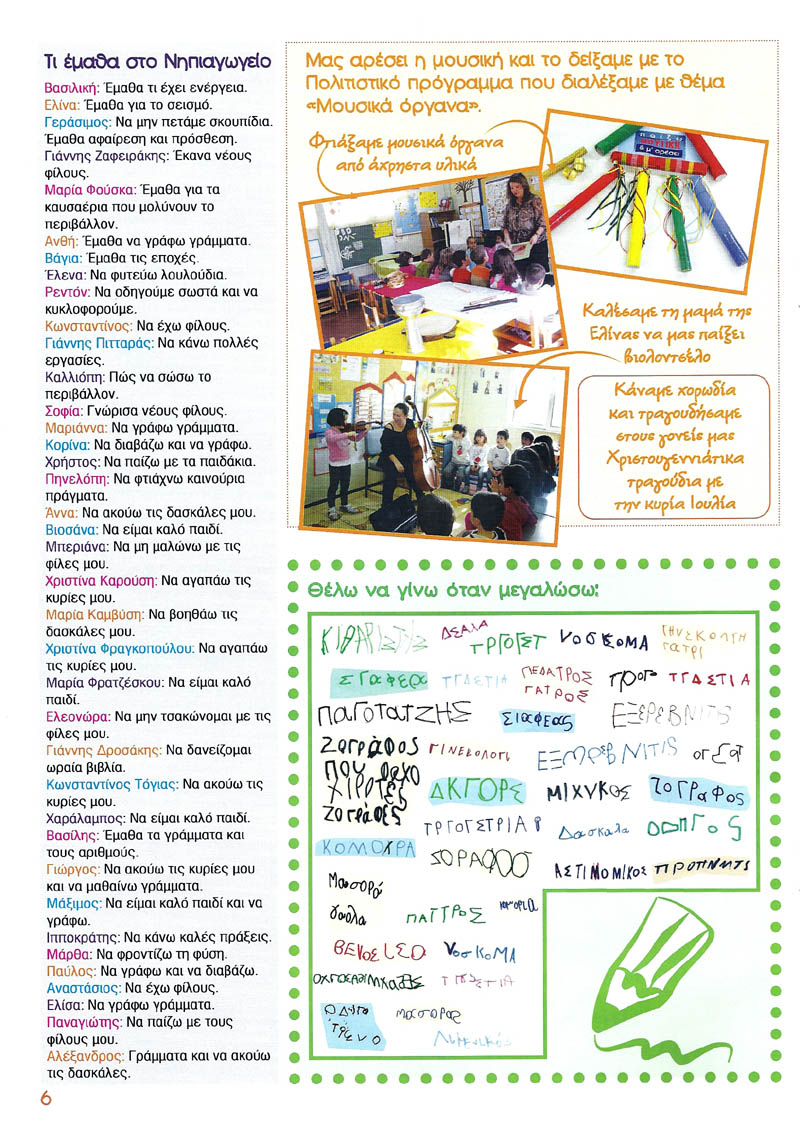 Τι έμαθα στο Νηπιαγωγείο
Βασιλική: Έμαθα τι έχει ενέργεια.
Ελίνα: Έμαθα για το σεισμό.
Γεράσιμος: Να μην πετάμε σκουπίδια.
Έμαθα αφαίρεση και πρόσθεση.
Γιάννης Ζαφειράκης: Έκανα νέους
φίλους.
Μαρία Φούσκα: Έμαθα για τα
καυσαέρια που μολύνουν το
περιβάλλον.
Ανθή: Έμαθα να γράφω γράμματα.
Βάγια: Έμαθα τις εποχές.
Έλενα: Να φυτεύω λουλούδια.
Ρεντόν: Να οδηγούμε σωστά και να
κυκλοφορούμε.
Κωνσταντίνος: Να έχω φίλους.
Γιάννης Πιτταράς: Να κάνω πολλές
εργασίες.
Καλλιόπη: Πώς να σώσω το
περιβάλλον.
Σοφία: Γνώρισα νέους φίλους.
Μαριάννα: Να γράφω γράμματα.
Κορίνα: Να διαβάζω και να γράφω.
Χρήστος: Να παίζω με τα παιδάκια.
Πηνελόπη: Να φτιάχνω καινούρια
πράγματα.
Άννα: Να ακούω τις δασκάλες μου.
Βιοσάνα: Να είμαι καλό παιδί.
Μπεριάνα: Να μη μαλώνω με τις
φίλες μου.
Χριστίνα Καρούση: Να αγαπάω τις
κυρίες μου.
Μαρία Καμβύση: Να βοηθάω τις
δασκάλες μου.
Χριστίνα Φραγκοπούλου: Να αγαπάω
τις κυρίες μου.
Μαρία Φρατζέσκου: Να είμαι καλό
παιδί.
Ελεονώρα: Να μην τσακώνομαι με τις
φίλες μου.
Γιάννης Δροσάκης: Να δανείζομαι
ωραία βιβλία.
Κωνσταντίνος Τόγιας: Να ακούω τις
κυρίες μου.
Χαράλαμπος: Να είμαι καλό παιδί.
Βασίλης: Έμαθα τα γράμματα και
τους αριθμούς.
Γιώργος: Να ακούω τις κυρίες μου
και να μαθαίνω γράμματα.
Μάξιμος: Να είμαι καλό παιδί και να
γράφω.
Ιπποκράτης: Να κάνω καλές πράξεις.
Μάρθα: Να φροντίζω τη φύση.
Παύλος: Να γράφω και να διαβάζω.
Αναστάσιος: Να έχω φίλους.
Ελίσα: Να γράφω γράμματα.
Παναγιώτης: Να παίζω με τους
φίλους μου.
Αλέξανδρος: Γράμματα και να ακούω
τις δασκάλες.
6
Μας αρέσει η μουσική και το δείξαμε με το
Πολιτιστικό πρόγραμμα που διαλέξαμε με θέμα
«Μουσικά όργανα».
Φτιάξαμε μουσικά όργανα
από άχρηστα υλικά
παίζω
ΜΟΥΣΙΚΗ
& μ' αρέσει
Καλέσαμε τη μαμά της
Ελίνας να μας παίξει
βιολοντσέλο
Κάναμε χορωδία
και τραγουδήσαμε
στους γονείς μας
Χριστουγεννιάτικα
τραγούδια με
την κυρία Ιουλία
Θέλω να γίνω όταν μεγαλώσω:
ΚΙΘΑΡΙΣΤΗΣ ΤΡΓΟΓΕΤ ΝΟΣΚΟΜΑ
ΣΓΑΦΕΡΑ ΤΓΔΣΤΙΑ ΠΕΔΑΤΡΟΣ ΓΑΤΡΟΣ ΤΓΔΣΤΙΑ
ΠΑΓΟΤΑΤΖΗΣ ΣΙΑΦΕΑΣ ΕΞΕΡΕΒΝΙΤΙΣ
Ζογράφος ΓΙΝΕΚΟΛΟΓΙ ΕΞΠΡΕΒΝΙΤΙΣ
ΔΚΓΟΡΣ ΜΙΧΥΚΟΣ ΖΟΓΡΑΦΟΣ
ΚΟΜΟΚΡΑ ΤΡΓΟΓΣΤΡΙΑ Δασκαλα ΟΔΠΓΟΣ
ΣΟΡΑΦΟΣ ΑΣΤΙΝΟΜΙΚΟΣ ΠΡΟΠΝΙΤΣ
ΠΑΓΤΡΟΣ
ΝΟΣΚΟΜΑ